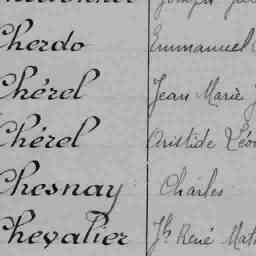 Cherdo Emmanuel
Chérel Jean Marie
Chérel Aristide Léon
Chesnay Charles
Chevalier Jh René Math